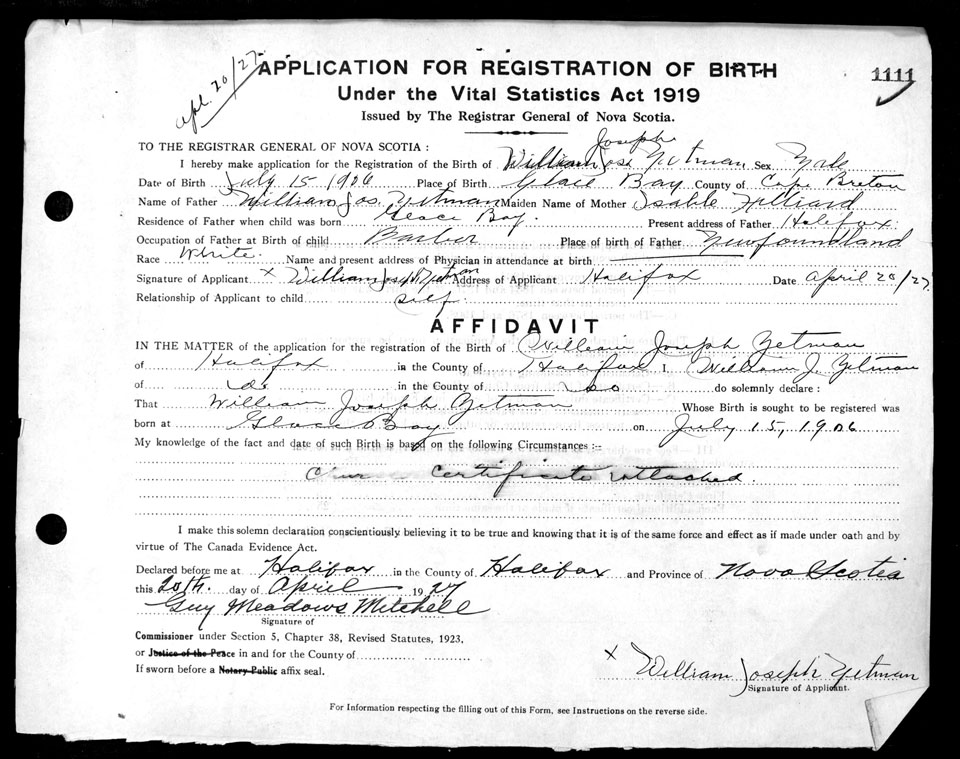 Apl. 20/27.
APPLICATION FOR REGISTRATION OF BIRTH
1111
Under the Vital Statistics Act 1919
Issued by The Registrar General of Nova Scotia.
TO THE REGISTRAR GENERAL OF NOVA SCOTIA :
Joseph
I hereby make application for the Registration of the Birth of William Jos. Yetman Sex Male
Date of Birth July 15 1906 Place of Birth Glace Bay County of Cape Breton
Name of Father William Jos. Yetman Maiden Name of Mother Isable
Residence of Father when child was born Glace Bay. Present address of Father Halifax.
Occupation of Father at Birth of child Barber Place of birth of Father Newfoundland
Race White. Name and present address of Physician in attendance at birth
Signature of Applicant x William Joseph Yetman Address of Applicant Halifax Date April 20/27.
Relationship of Applicant to child self.
AFFIDAVIT
IN THE MATTER of the application for the registration of the Birth of William Joseph Yetman
of Halifax in the County of Halifax I, William J. Yetman
of do in the County of do do solemnly declare :
That William Joseph Yetman Whose Birth is sought to be registered was
born at Glace Bay on July 15, 1906
My knowledge of the fact and date of such Birth is based on the following Circumstances :--
Certificate attached.
I make this solemn declaration conscientiously believing it to be true and knowing that it is of the same force and effect as if made under oath and by
virtue of The Canada Evidence Act.
Declared before me at Halifax in the County of Halifax and Province of Nova Scotia
this 20th. day of April 1927
Guy Meadows Mitchell
Signature of
Commissioner under Section 5, Chapter 38, Revised Statutes, 1923,
or Justice of the Peace in and for the County of
If sworn before a Notary Public affix seal.
x William Joseph Yetman
Signature of Applicant.
For Information respecting the filling out of this Form, see Instructions on the reverse side.